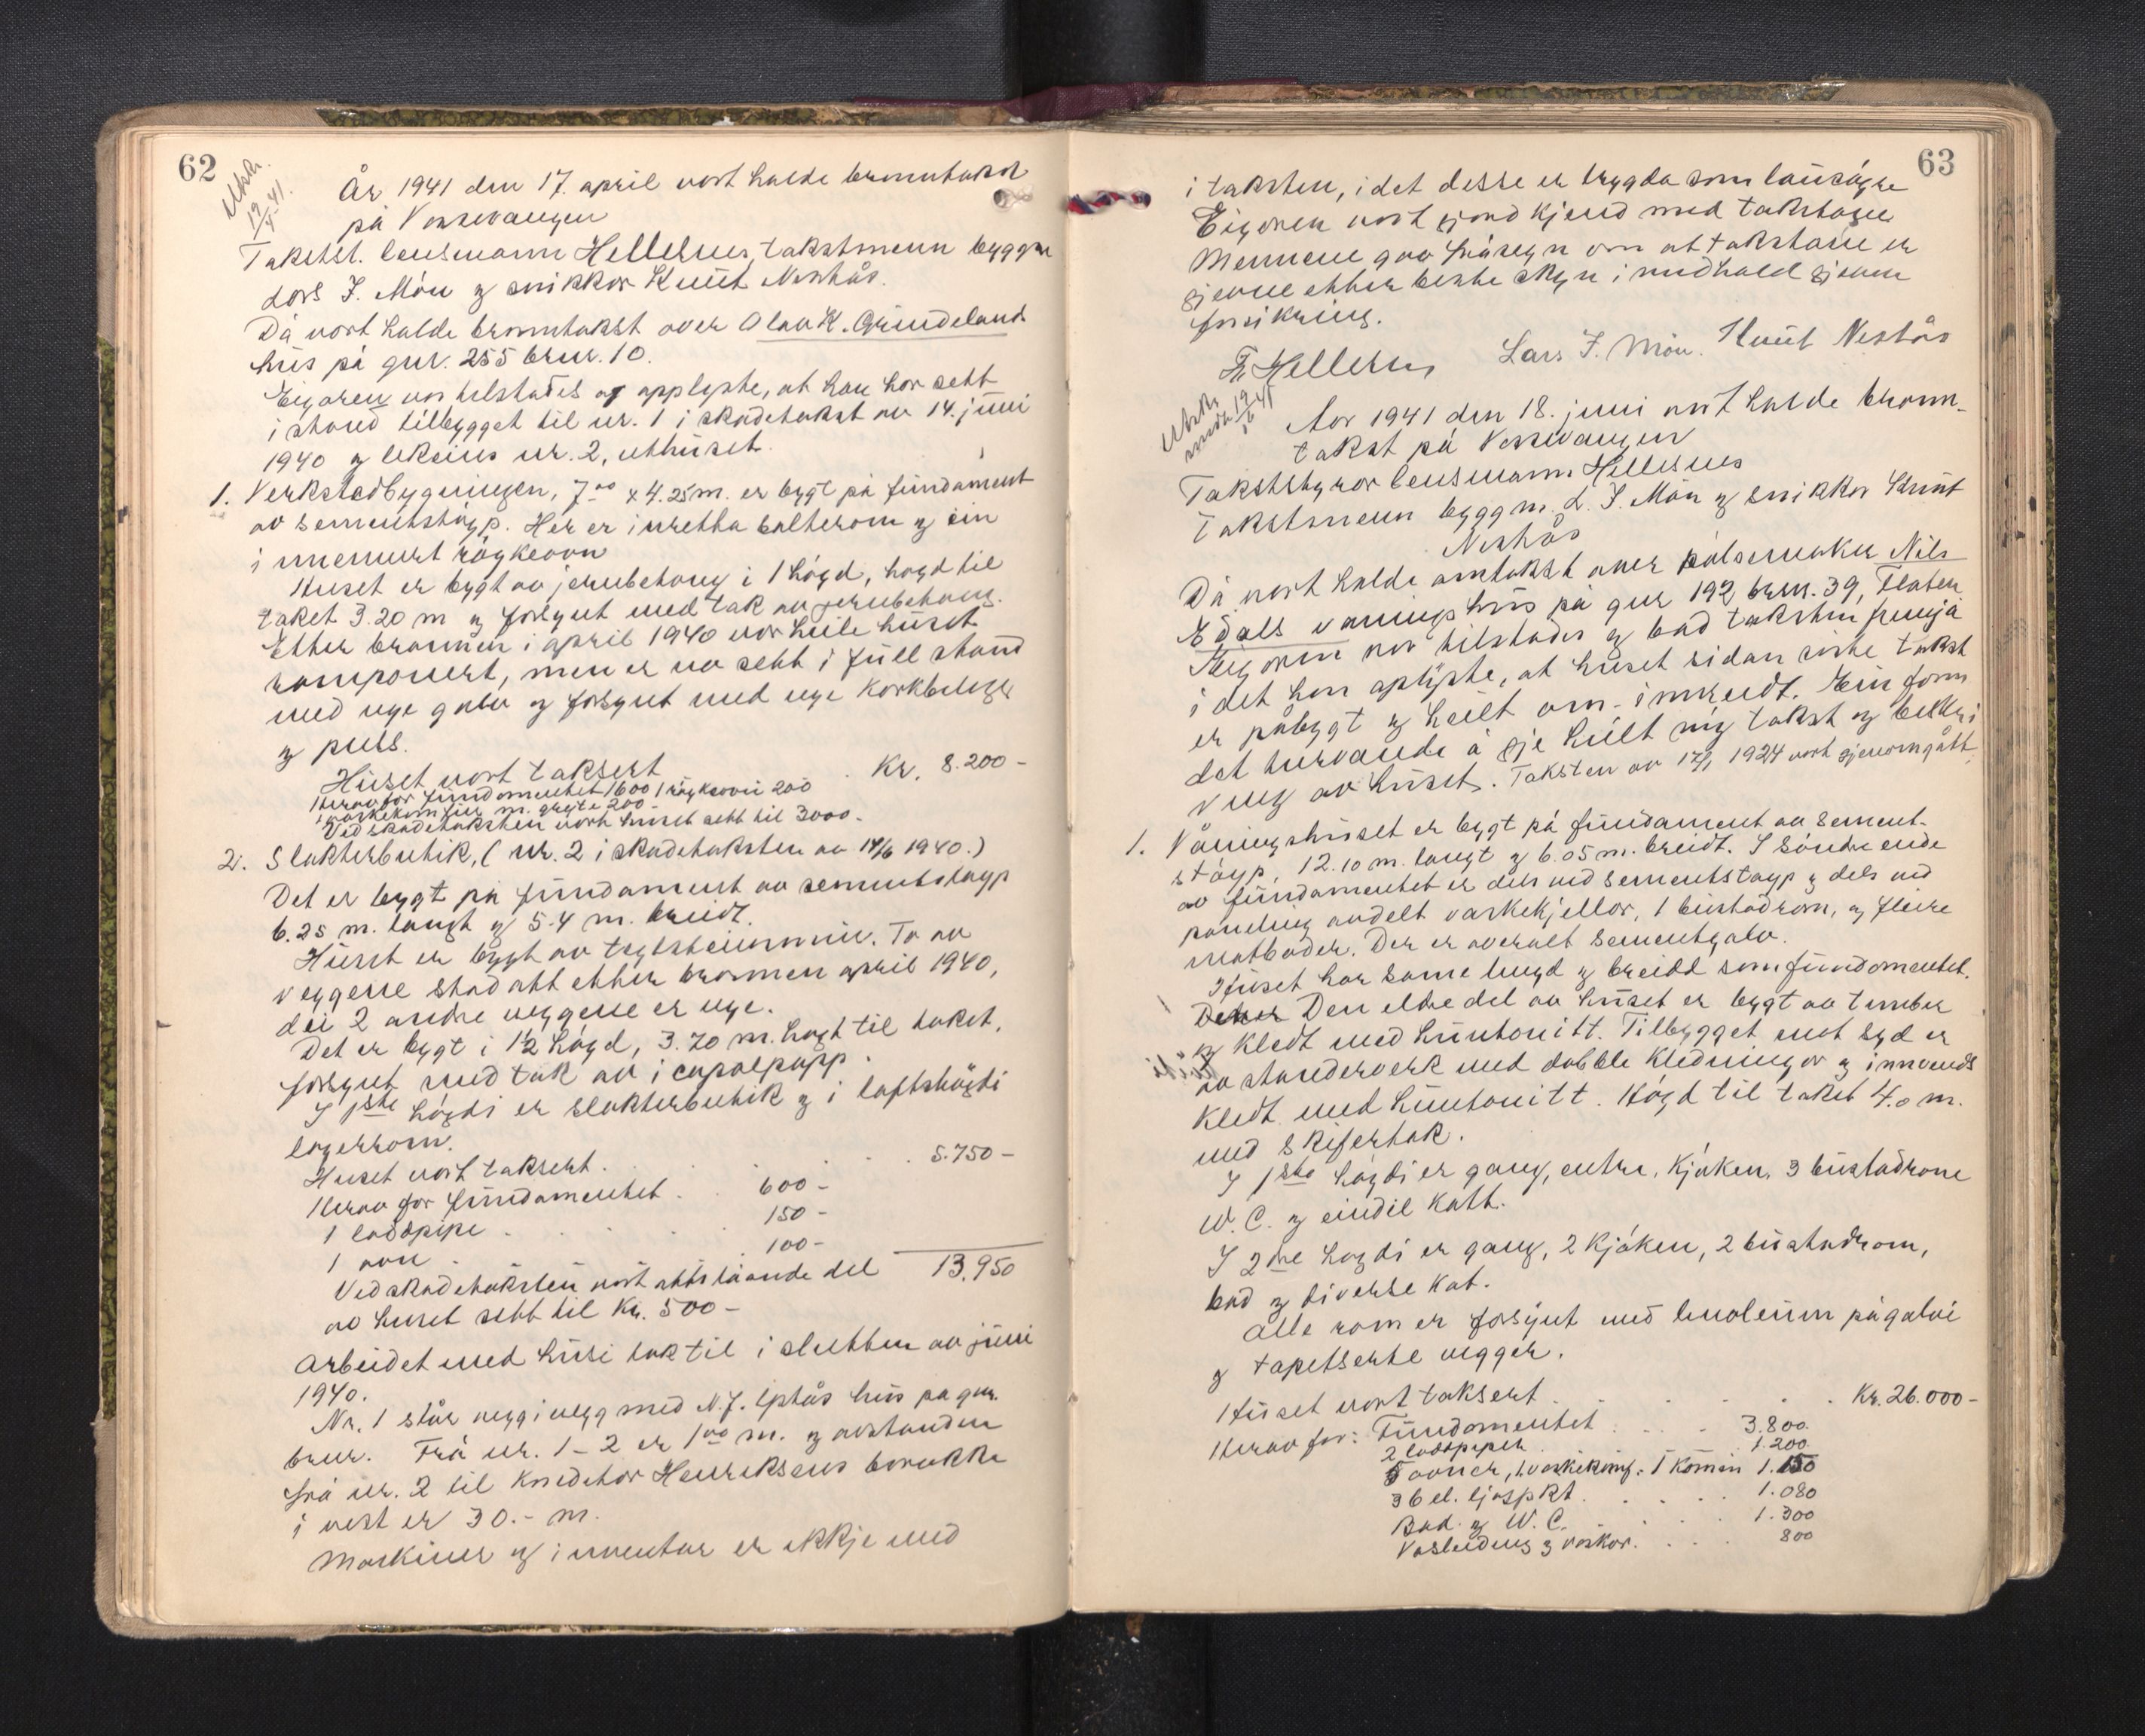 62
Utskr.
19/4-41.
År 1941 den 17. april vart halde branntakst
på Vossevangen
Takstst. lensmann Hellesnes, takstmenn byggm
Lars J. Møn og snikkar Knut Nestås.
Då vart halde branntakst over Olav K. Grindeland
hus på gnr. 255 brnr. 10.
Eigaren var tilstades og opplyste, at han har sett
i stand tilbygget til nr. 1 i skadetakst av 14. juni
1940 og nr. 2, uthuset.
1. Verkstedbygningen, 7.00 x 4.25 m. er bygt på fundament
av sementstøyp. Her er innretta salterom og ein
innemurt røykeovn
Huset er bygt av jernbetong i 1 høgd, høgd til
taket 3.20 m og forsynt med tak av jernbetong.
Etter brannen i april 1940 var heile huset
ramponert, men er no sett i full stand
med nye golv og forsynt med nye korkbelegg
og puss.
Huset vart taksert . Kr. 8.200 -
Herav for fundamentet 1600 1 røykeovn 200
1 vaskekomfur m. gryte 200 -
Ved skadetaksten vart huset sett til 3000 -
2. Slakterbutik, (nr. 2 i skadetaksten av 14/6 1940.)
Det er bygt på fundament av sementstøyp
6.25 m. langt og 5.4 m. breidt.
Huset er bygt av teglsteinmur. To av
veggene stod att etter brannen april 1940,
dei 2 andre veggene er nye.
Det er bygt i 1½ høgd, 3.70 m. høgt til taket,
forsynt med tak av icopalpapp.
I 1ste høgdi er slakterbutik og i loftshøgdi
lagerrom.
Huset vart taksert . . . . 5.750 -
Herav for fundamentet . 600 -
1 loddpipe . . . 150 -
1 ovn . . . 100 -
13.950
Ved skadetaksten vart attståande del
av huset sett til Kr. 500 -
Arbeidet med husi tok til i slutten av juni
1940.
Nr. 1 står vegg i vegg med N. J. hus på gnr.
brnr. Frå nr. 1 - 2 er 1.00 m. og avstanden
frå nr. 2 til Henriksens barakke
i vest er 30.- m.
Maskiner og inventar er ikkje med
63
i taksten, i det desse er trygda som lausøyre
Eigaren vart gjord kjend med takstane
Mennene gav frásegn om at takstane er
gjevne etter beste skyn i medhald gjevne
forsikring.
Fr. Hellesnes Lars J. Møn. Knut Nestås
Utskr.
sendt 19/6 41
Aar 1941 den 18. juni vart halde brann-
takst på Vossevangen
Takststyrar lensmann Hellesnes
Takstmenn byggm. L. J. Møn og snikkar Knut
Nestås
Då vart halde omtakst over pølsemaker Nils
Edals våningshus på gnr 192, brnr. 39, Flaten
Eigaren var tilstades og bad taksten fremja
i det han oplyste, at huset sidan siste takst
er påbygt og heilt om-innreidt. Ein fann
det turvande å gje heilt ny takst og beskri
ving av huset. Taksten av 17/1 1924 vart gjenomgått.
1. Våningshuset er bygt på fundament av sement-
støyp, 12.10 m. langt og 6.05 m. breidt. I søndre ende
av fundamentet er dels ved sementstøyp og dels ved
paneling avdelt vaskekjellar, 1 bustadrom, og fleire
matboder. Der er overalt sementgolv.
Huset har same lengd og breidd som fundamentet.
Den eldre del av huset er bygt av tømber
og kledt med huntonitt. Tilbygget mot syd er
av standerverk med dobble kledningar og innvendes
kledt med huntonitt. Høgd til taket 4.0 m.
med skifertak.
I 1ste høgdi er gang, entre, kjøken, 3 bustadrom
W.C. og eindil kott.
I 2dre høgdi er gang, 2 kjøken, 2 bustadrom,
bad og diverse kot.
Alle rom er forsynt med linoleum på golvi
og tapetserte vegger.
Huset vart taksert . . . . . Kr. 26.000 -
Herav for: Fundamentet . . . 3.800.
2 loddpiper . 1.200.
5 ovner, 1 vaskekomf. 1 komin 1.150
36 el. ljospkt . . . 1.080
Bad og W.C. . . . 1.300
Vasleidning og vaskar . . . 800